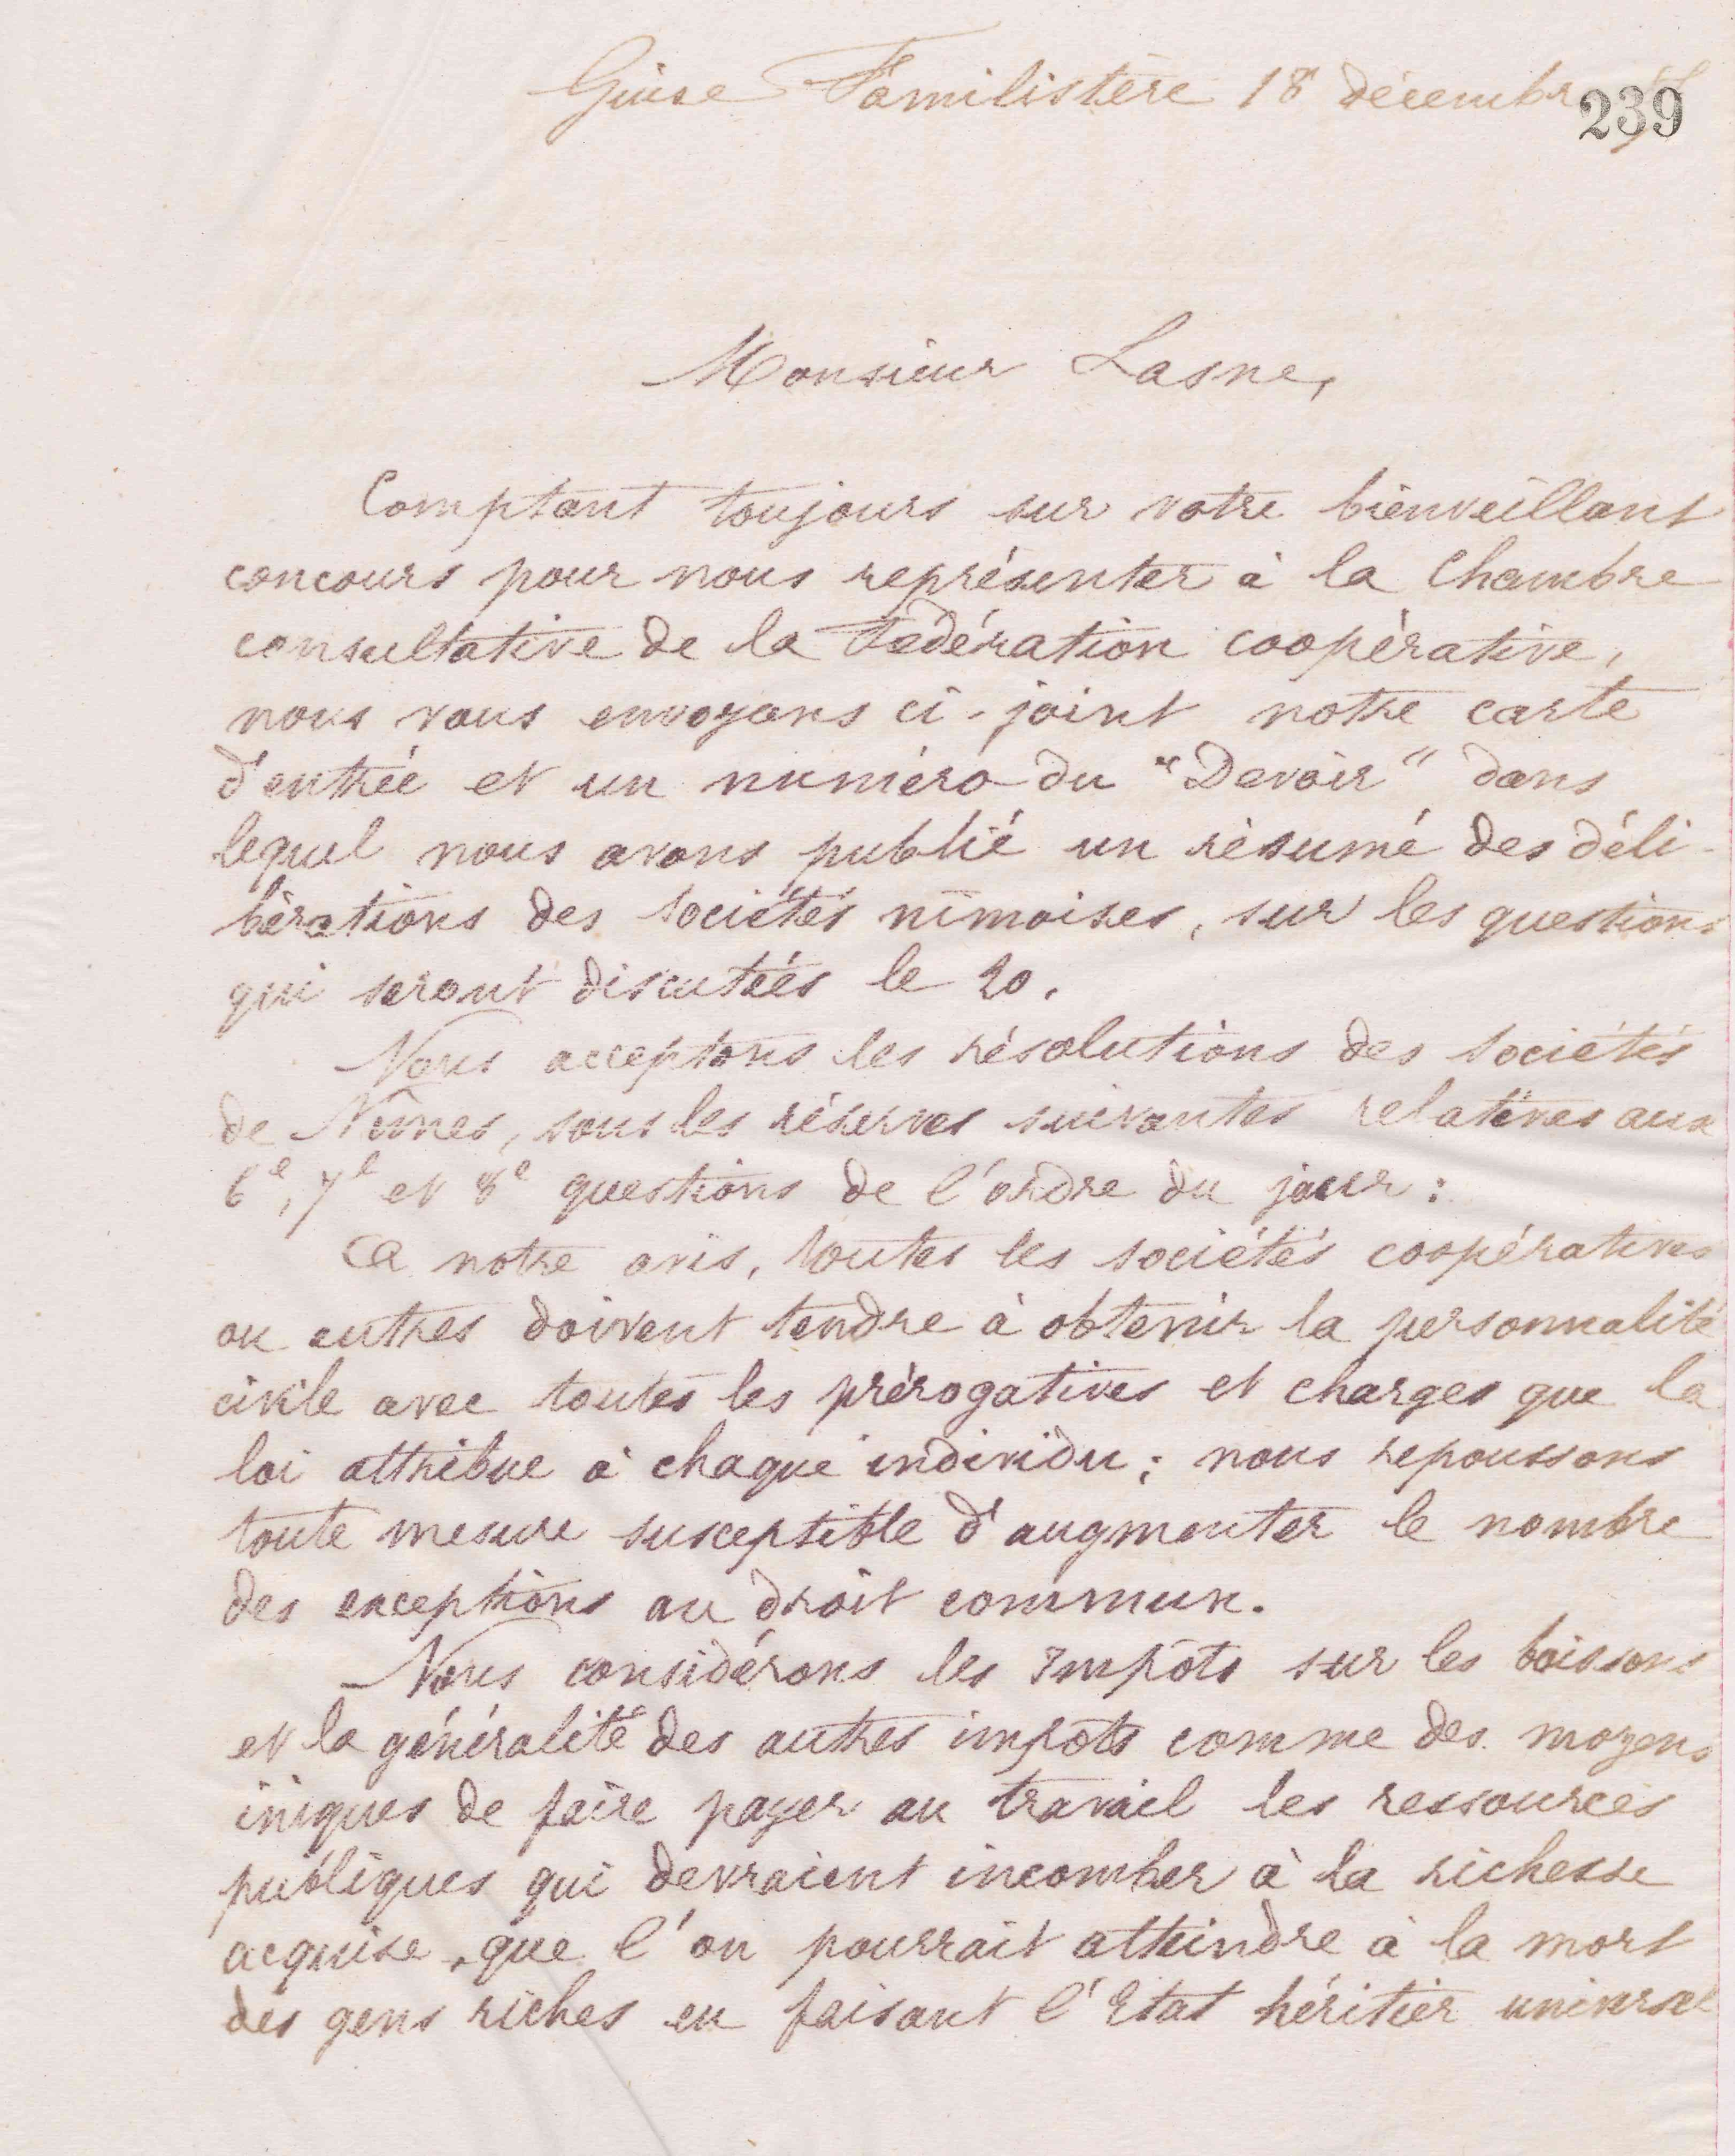 Guise Familistère 18 décembre
239
Monsieur Lasne,
Comptant toujours sur votre bienveillant
concours pour nous représenter à la Chambre
consultative de la Fédération coopérative,
nous vous envoyons ci-joint notre carte
d'entrée et un numéro du "Devoir" dans
lequel nous avons publié un résumé des déli-
bérations des sociétés nimoises, sur les questions
qui seront discutées le 20.
Nous acceptons les résolutions des sociétés
de Nîmes, sous les réserves suivantes relatives aux
6e, 7e et 8e questions de l'ordre du jour :
A notre avis, toutes les sociétés coopératives
ou autres doivent tendre à obtenir la personnalité
civile avec toutes les prérogatives et charges que la
loi attribue à chaque individu ; nous repoussons
toute mesure susceptible d'augmenter le nombre
des exceptions au droit commun.
Nous considérons les impôts sur les boissons
et la généralité des autres impôts comme des moyens
iniques de faire payer au travail les ressources
publiques qui devraient incomber à la richesse
acquise, que l'on pourrait atteindre à la mort
des gens riches en faisant l'Etat héritier universel